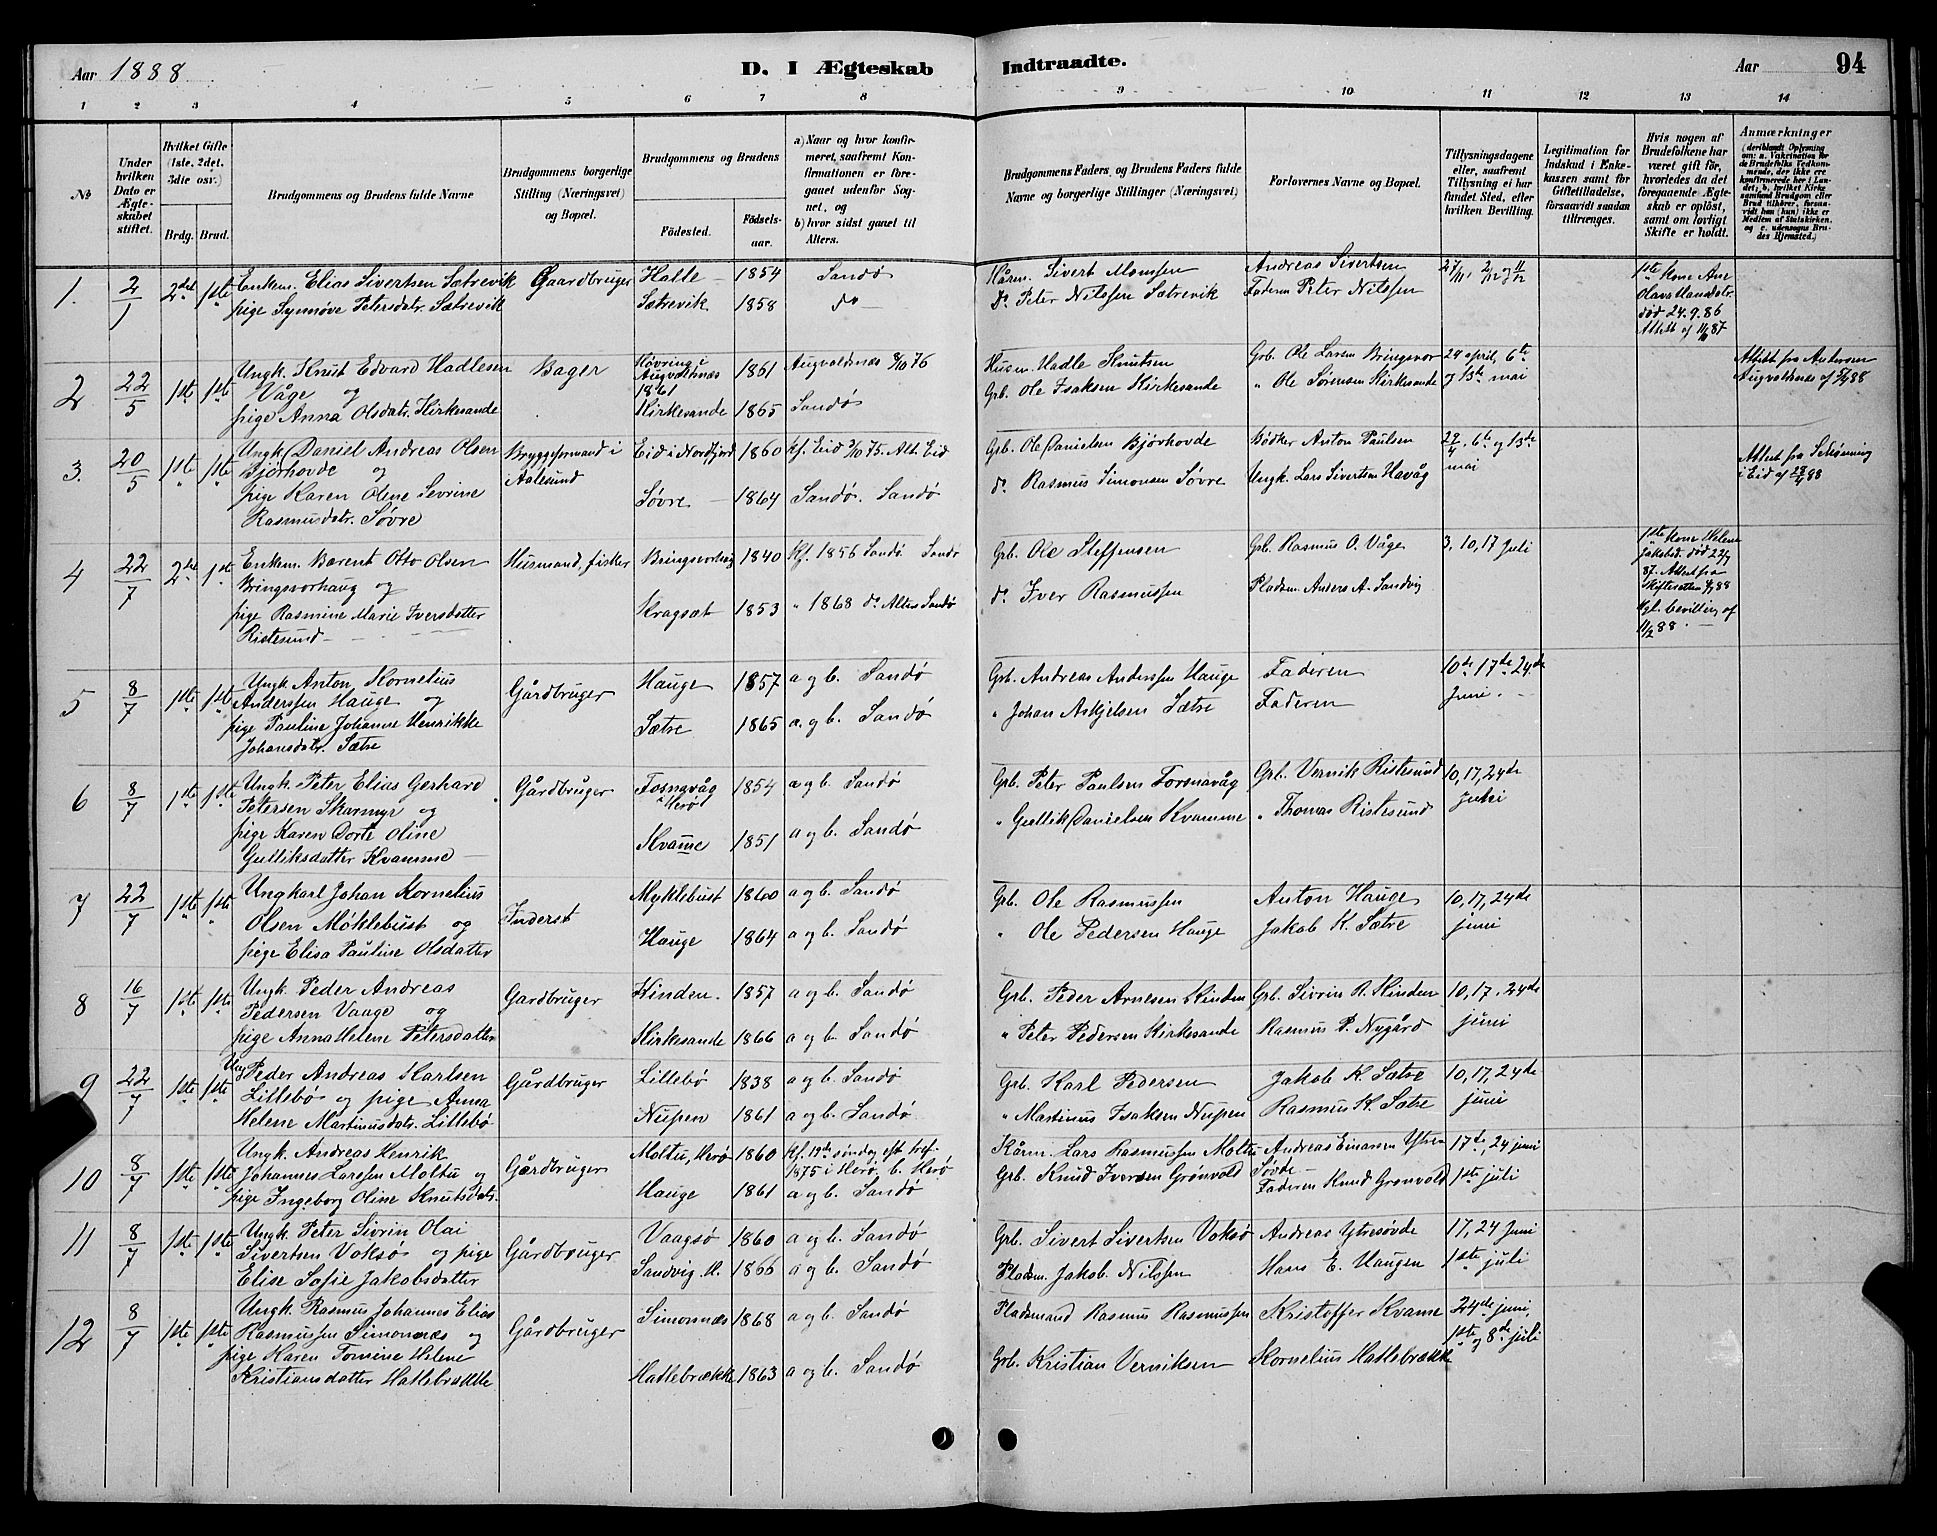 Aar 1888
D. I Ægteskab
Indtraadte.
Aar
94
1 2 3 4 5 6 7 8
9 10 11 12 13 14
№
Under hvilken Dato er Ægteskabet stiftet.
Hvilket Gifte (1ste, 2det, 3die osv.)
Brdg. Brud.
Brudgommens og Brudens fulde Navne
Brudgommens borgerlige Stilling (Næringsvei) og Bopæl.
Brudgommens og Brudens
Fødested.
Fødselsaar.
a) Naar og hvor konfirmeret, saafremt Konfirmationen er foregaaet udenfor Sognet, og
b) hvor sidst gaaet til Alters.
Brudgommens Faders og Brudens Faders fulde Navne og borgerlige Stillinger (Næringsvei)
Forlovernes Navne og Bopæl.
Tillysningsdagene eller, saafremt Tillysning ei har fundet Sted, efter hvilken Bevilling.
Legitimation for Indskud i Enkekassen samt for Giftetilladelse, forsaavidt saadan tiltrænges.
Hvis nogen af Brudefolkene har været gift før, hvorledes da det foregaaende Ægteskab er opløst, samt om lovligt Skifte er holdt.
Anmærkninger (deriblandt Oplysning om: a. Vakcination for de Brudefolks Vedkommende, der ikke ere konfirmerede her i Landet; b. hvilket Kirkesamfund Brudgom eller Brud tilhører, forsaavidt han (hun) ikke er Medlem af Statskirken. og c. udensogns Brudes Hjemsted.)
1. 2/1 2det 1ste Enkem. Elias Sivertsen Sætrevik Gaardbruger Halle 1854 Sandø Kårm. Sivert Monssen Andreas Sivertsen 27/11, 2/12 og 11/12 1ste kone Ane
pige Synnøve Petersdatr. Sætrevik Sætrevik 1858 do Do Peter Nilssen Sætrevik Faderen Peter Nilssen Olava Hansdatr.
død 24.9.86
Attest af 11/11 87
2 22/5 1ste 1ste Ungk. Knut Edvard Hadlesen Bager Køvring i Augvaldsnæs 1861 Augvaldsnæs 8/10 76 Husm. Hadle Knutsen Grb. Ole Larsen Bringsvor 29 april, 6te Attest fra
Våge og 1861 og 13de mai Augvaldsnæs
pige Anna Olsdatr. Kirkesande Kirkesande 1865 Sandø Grb. Ole Isaksen Kirkesande " Ole Sørensen Kirkesande
3. 20/5 1ste 1ste Ungk. Daniel Andreas Olsen Bryggeformand i Eid i Nordfjord 1860 kf. Eid 3/10 75. Alt. Eid Grb. Ole Danielsen Bjørhovde Bødker Anton Paulsen 29/4, 6te og 13de Attest fra
Bjørhovde og Aalesund mai i Eid af
pige Karen Oline Sevrine Søvre 1864 Sandø. Sandø do. Rasmus Simonsen Søvre Ungk. Lars Sivertsen Havåg
Rasmusdatr. Søvre
4 22/7 2det 1ste Enkem. Berent Otto Olsen Husmand, fisker Bringsvorhaug 1840 Kf. 1856 Sandø Sandø Grb. Ole Steffensen Grb. Rasmus O. Våge 3, 10, 17 Juli 1ste kone Helene
Bringsvorhaug og Jakobsd. død
pige Rasmine Marie Iversdatter Kragsæt 1853 " 1868 do Alters Sandø do. Iver Rasmussen Pladsm. Anders A. Sandvig 87. Attest fra
Ristesund Skifteretten
Kgl. bevilling af
11/2 88.
5 8/7 1ste 1ste Ungk. Anton Kornelius Gårdbruger Hauge 1857 a og b. Sandø Grb. Andreas Anderssen Hauge Faderen 10de 17de 24de
Anderssen Hauge og Juni.
pige Pauline Johanne Henrikke Sætre 1865 a. og b. Sandø " Johan Askjelsen Sætre Faderen
Johansdatr. Sætre
6 8/7 1ste 1ste Ungk. Peter Elias Gerhard Gårdbruger Fosnavåg Herø 1854 a og b. Sandø Grb. Peter Paulsen Forsnavåg Grb. Vernik Ristesund 10, 17, 24de
Petersen Skarmyr og
pige Karen Dorte Oline Kvame 1851 a og b. Sandø " Gullik Danielsen Kvamme " Thomas Ristesund
Gulliksdatter Kvamme
7 22/7 1ste 1ste Ungkarl Johan Kornelius Inderst Myklebust 1860 a og b. Sandø Grb. Ole Rasmussen Anton Hauge 10, 17, 24de
Olsen Møklebust og juni
pige Elisa Pauline Olsdatter Hauge 1864 a og b. Sandø " Ole Pedersen Hauge Jakob K. Sætre
8 16/7 1ste 1ste Ungk. Peder Andreas Gardbruger Kinden. 1857 a og b. Sandø Grb. Peder Arnesen Kinden Grb. Sivrin R. Kinden 10, 17, 24de
Pedersen Vaage og juni
pige Anna Helene Petersdatter Kirkesande 1866 a og b. Sandø " Peter Pedersen Kirkesande Rasmus P. Nygård
9 22/7 1ste 1ste Ung Peder Andreas Karlsen Gårdbruger Lillebø 1838 a og b. Sandø Grb. Karl Pedersen Jakob K. Sætre 10, 17, 24de
Lillebø og pige Anna juni
Helene Martinusdatr. Lillebø Nupen 1861 a og b. Sandø " Martinus Isaksen Nupen Rasmus K. Sætre
10 8/7 1ste 1ste Ungk. Andreas Henrik Gårdbruger Moltu, Herø 1860 Kf. 19de søndag eft tref. Kårm. Lars Rasmussen Moltu Andreas Einarsen Ytre 17de, 24 juni
Johannes Larssen Moltu og 1875 i Herø, b. Herø Søvde
pige Ingeborg Oline Knutsdatr. Hauge 1861 a og b. Sandø Grb. Knud Iversen Grønvold Faderen Knud Grønvold 1ste juli
11 8/7 1ste 1ste Ungk. Peter Sivrin Olai Gårdbruger Vaagsø 1860 a og b. Sandø Grb. Sivert Sivertsen Voksø Andreas Ytresøvde 17, 24 Juni
Sivertsen Voksø og pige 1ste juli
Elise Sofie Jakobsdatter Sandvig H. 1866 a og b. Sandø Pladsm. Jakob Nilssen Hans E. Haugen
12 8/7 1ste 1ste Ungk. Rasmus Johannes Elias Gårdbruger Simonnæs 1868 a og b. Sandø Pladsmand Rasmus Rasmussen Kristoffer Kvame 24de juni,
Rasmussen Simonnæs og 1ste og 8de juli
pige Karen Tomine Helene Hatlebrække 1863 a og b. Sandø Grb. Kristian Verniksen Kornelius Hatlebrække
Kristiansdatter Hatlebrække